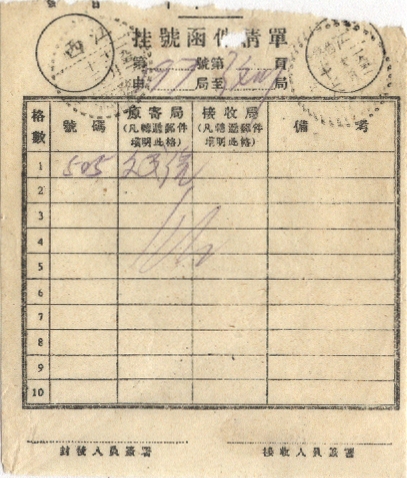 挂號函件清單
第 號第 頁
由 局至 局
格數
號碼
原寄局
(凡轉遞郵件
填明此格)
接收局
(凡轉遞郵件
填明此格)
備考
1 505
2
3
4
5
6
7
8
9
10
封發人員簽署 接收人員簽署